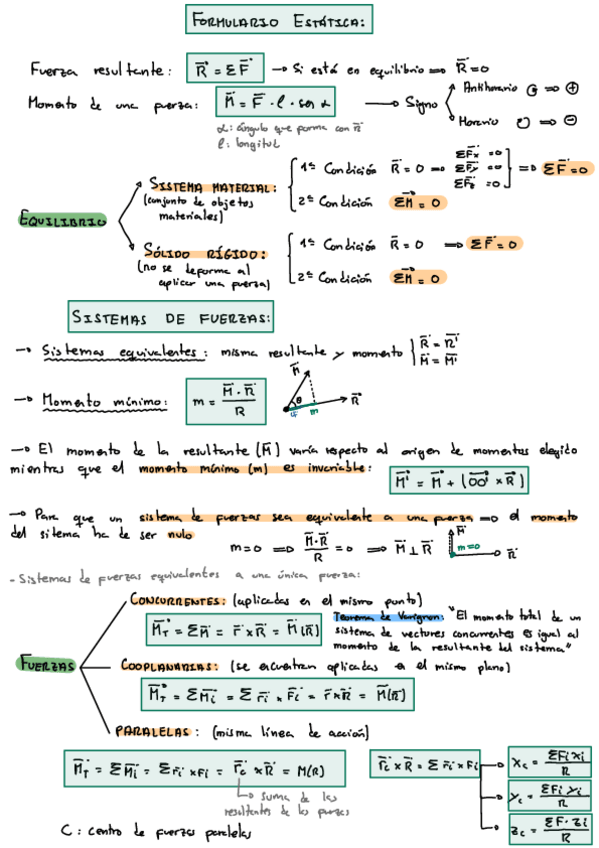 FORMULARIO ESTÁTICA:
Fuerza resultante: R = ΣF → Si está en equilibrio ⇒ R = 0
Momento de una fuerza: M = F · l · sen α → Signo
Antihorario ⇒ +
Horario ⇒ −
α: ángulo que forma con R
l: longitud
EQUILIBRIO
SISTEMA MATERIAL:
(conjunto de objetos
materiales)
1ª Condición R = 0 ⇒ ΣFx = 0
ΣFy = 0
ΣFz = 0
⇒ ΣF = 0
2ª Condición ΣM = 0
SÓLIDO RÍGIDO:
(no se deforma al
aplicar una fuerza)
1ª Condición R = 0 ⇒ ΣF = 0
2ª Condición ΣM = 0
SISTEMAS DE FUERZAS:
→ Sistemas equivalentes: misma resultante y momento
R = R'
M = M'
→ Momento mínimo: m = M · R / R
M
θ
m
R
→ El momento de la resultante (M) varía respecto al origen de momentos elegido
mientras que el momento mínimo (m) es invariable: M' = M + (OO' × R)
→ Para que un sistema de fuerzas sea equivalente a una fuerza ⇒ el momento
del sitema ha de ser nulo
m = 0 ⇒ M · R / R = 0 ⇒ M ⊥ R
M
m = 0
R
- Sistemas de fuerzas equivalentes a una única fuerza:
FUERZAS
CONCURRENTES: (aplicadas en el mismo punto)
MT = ΣM = r × R = M(R)
Teorema de Varignon: "El momento total de un
sistema de vectores concurrentes es igual al
momento de la resultante del sistema"
COOPLANARIAS: (se encuentran aplicadas en el mismo plano)
MT = ΣMi = Σ ri × Fi = r × R = M(R)
PARALELAS: (misma línea de acción)
MT = ΣMi = Σ ri × Fi = rc × R = M(R)
suma de las
resultantes de las fuerzas
rc × R = Σ ri × Fi
xc = ΣFi xi / R
yc = ΣFi yi / R
zc = ΣF · zi / R
C: centro de fuerzas paralelas